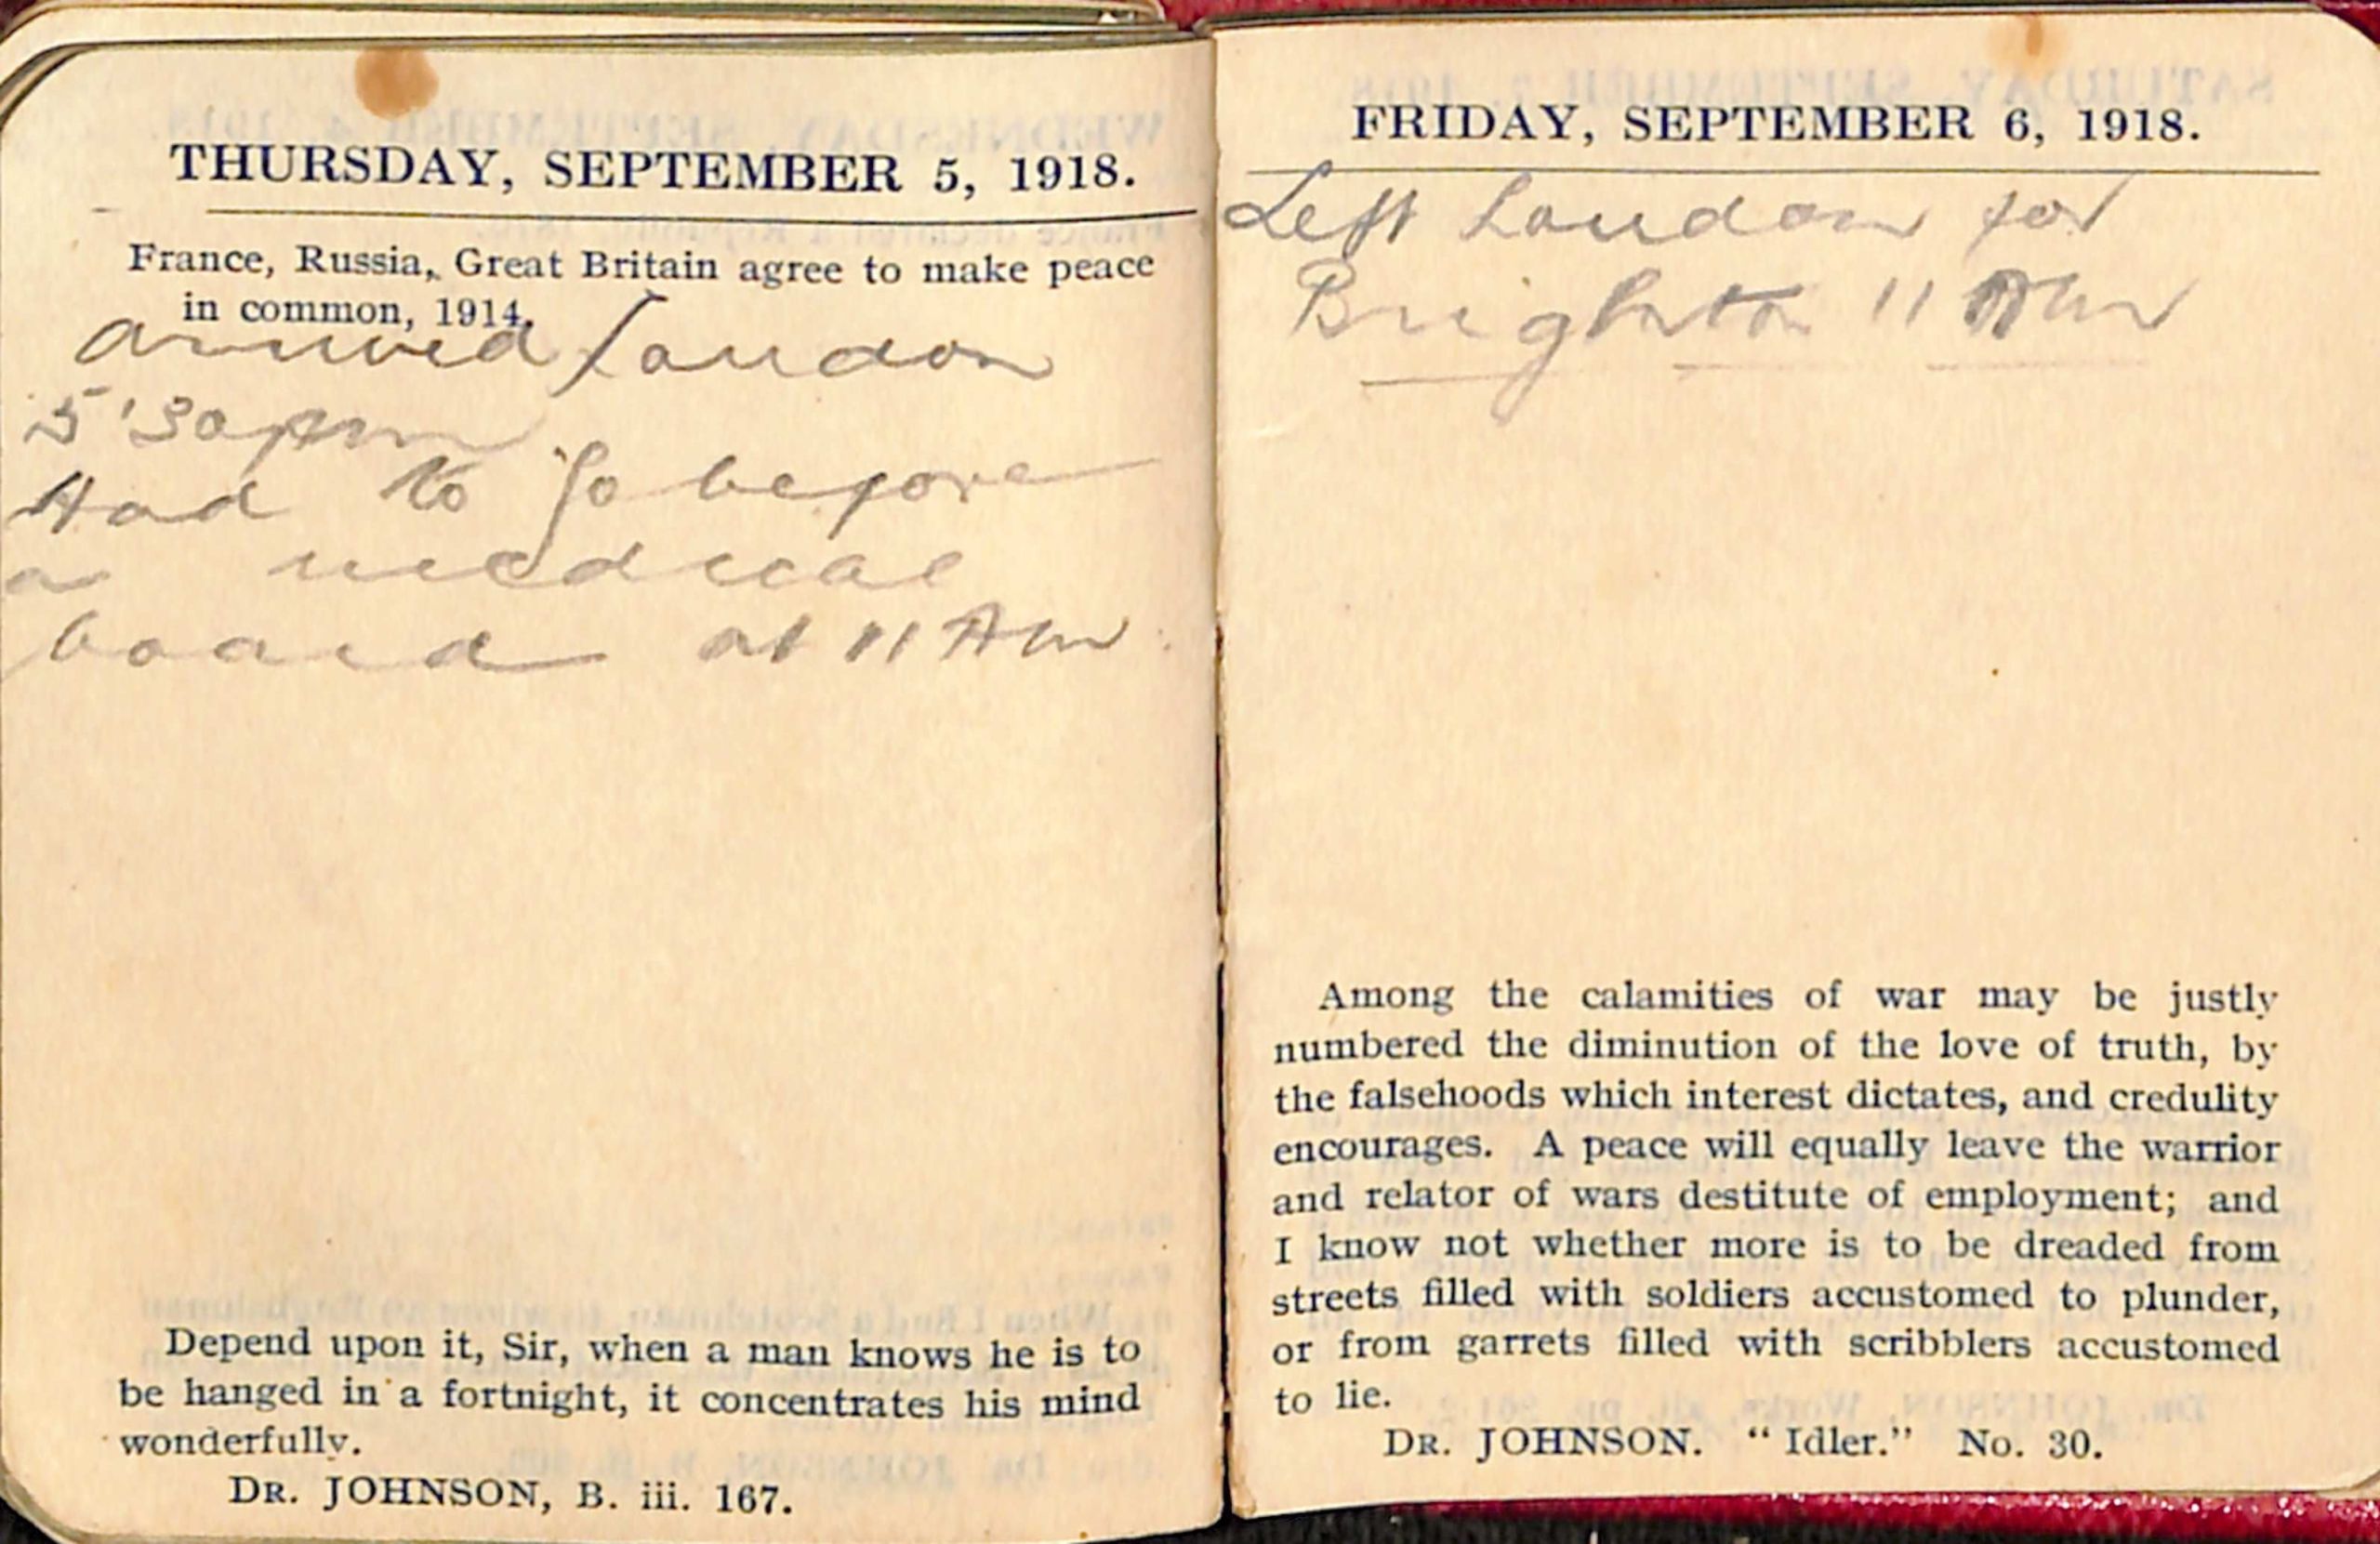 THURSDAY, SEPTEMBER 5, 1918.
France, Russia, Great Britain agree to make peace
in common, 1914.
arrived London
5'30pm
Had to go before
a medical
board at 11 Am
Depend upon it, Sir, when a man knows he is to
be hanged in a fortnight, it concentrates his mind
wonderfully.
DR. JOHNSON, B. iii. 167.
FRIDAY, SEPTEMBER 6, 1918.
Left London for
Brighton 11 Am
Among the calamities of war may be justly
numbered the diminution of the love of truth, by
the falsehoods which interest dictates, and credulity
encourages. A peace will equally leave the warrior
and relator of wars destitute of employment; and
I know not whether more is to be dreaded from
streets filled with soldiers accustomed to plunder,
or from garrets filled with scribblers accustomed
to lie.
DR. JOHNSON. "Idler." No. 30.